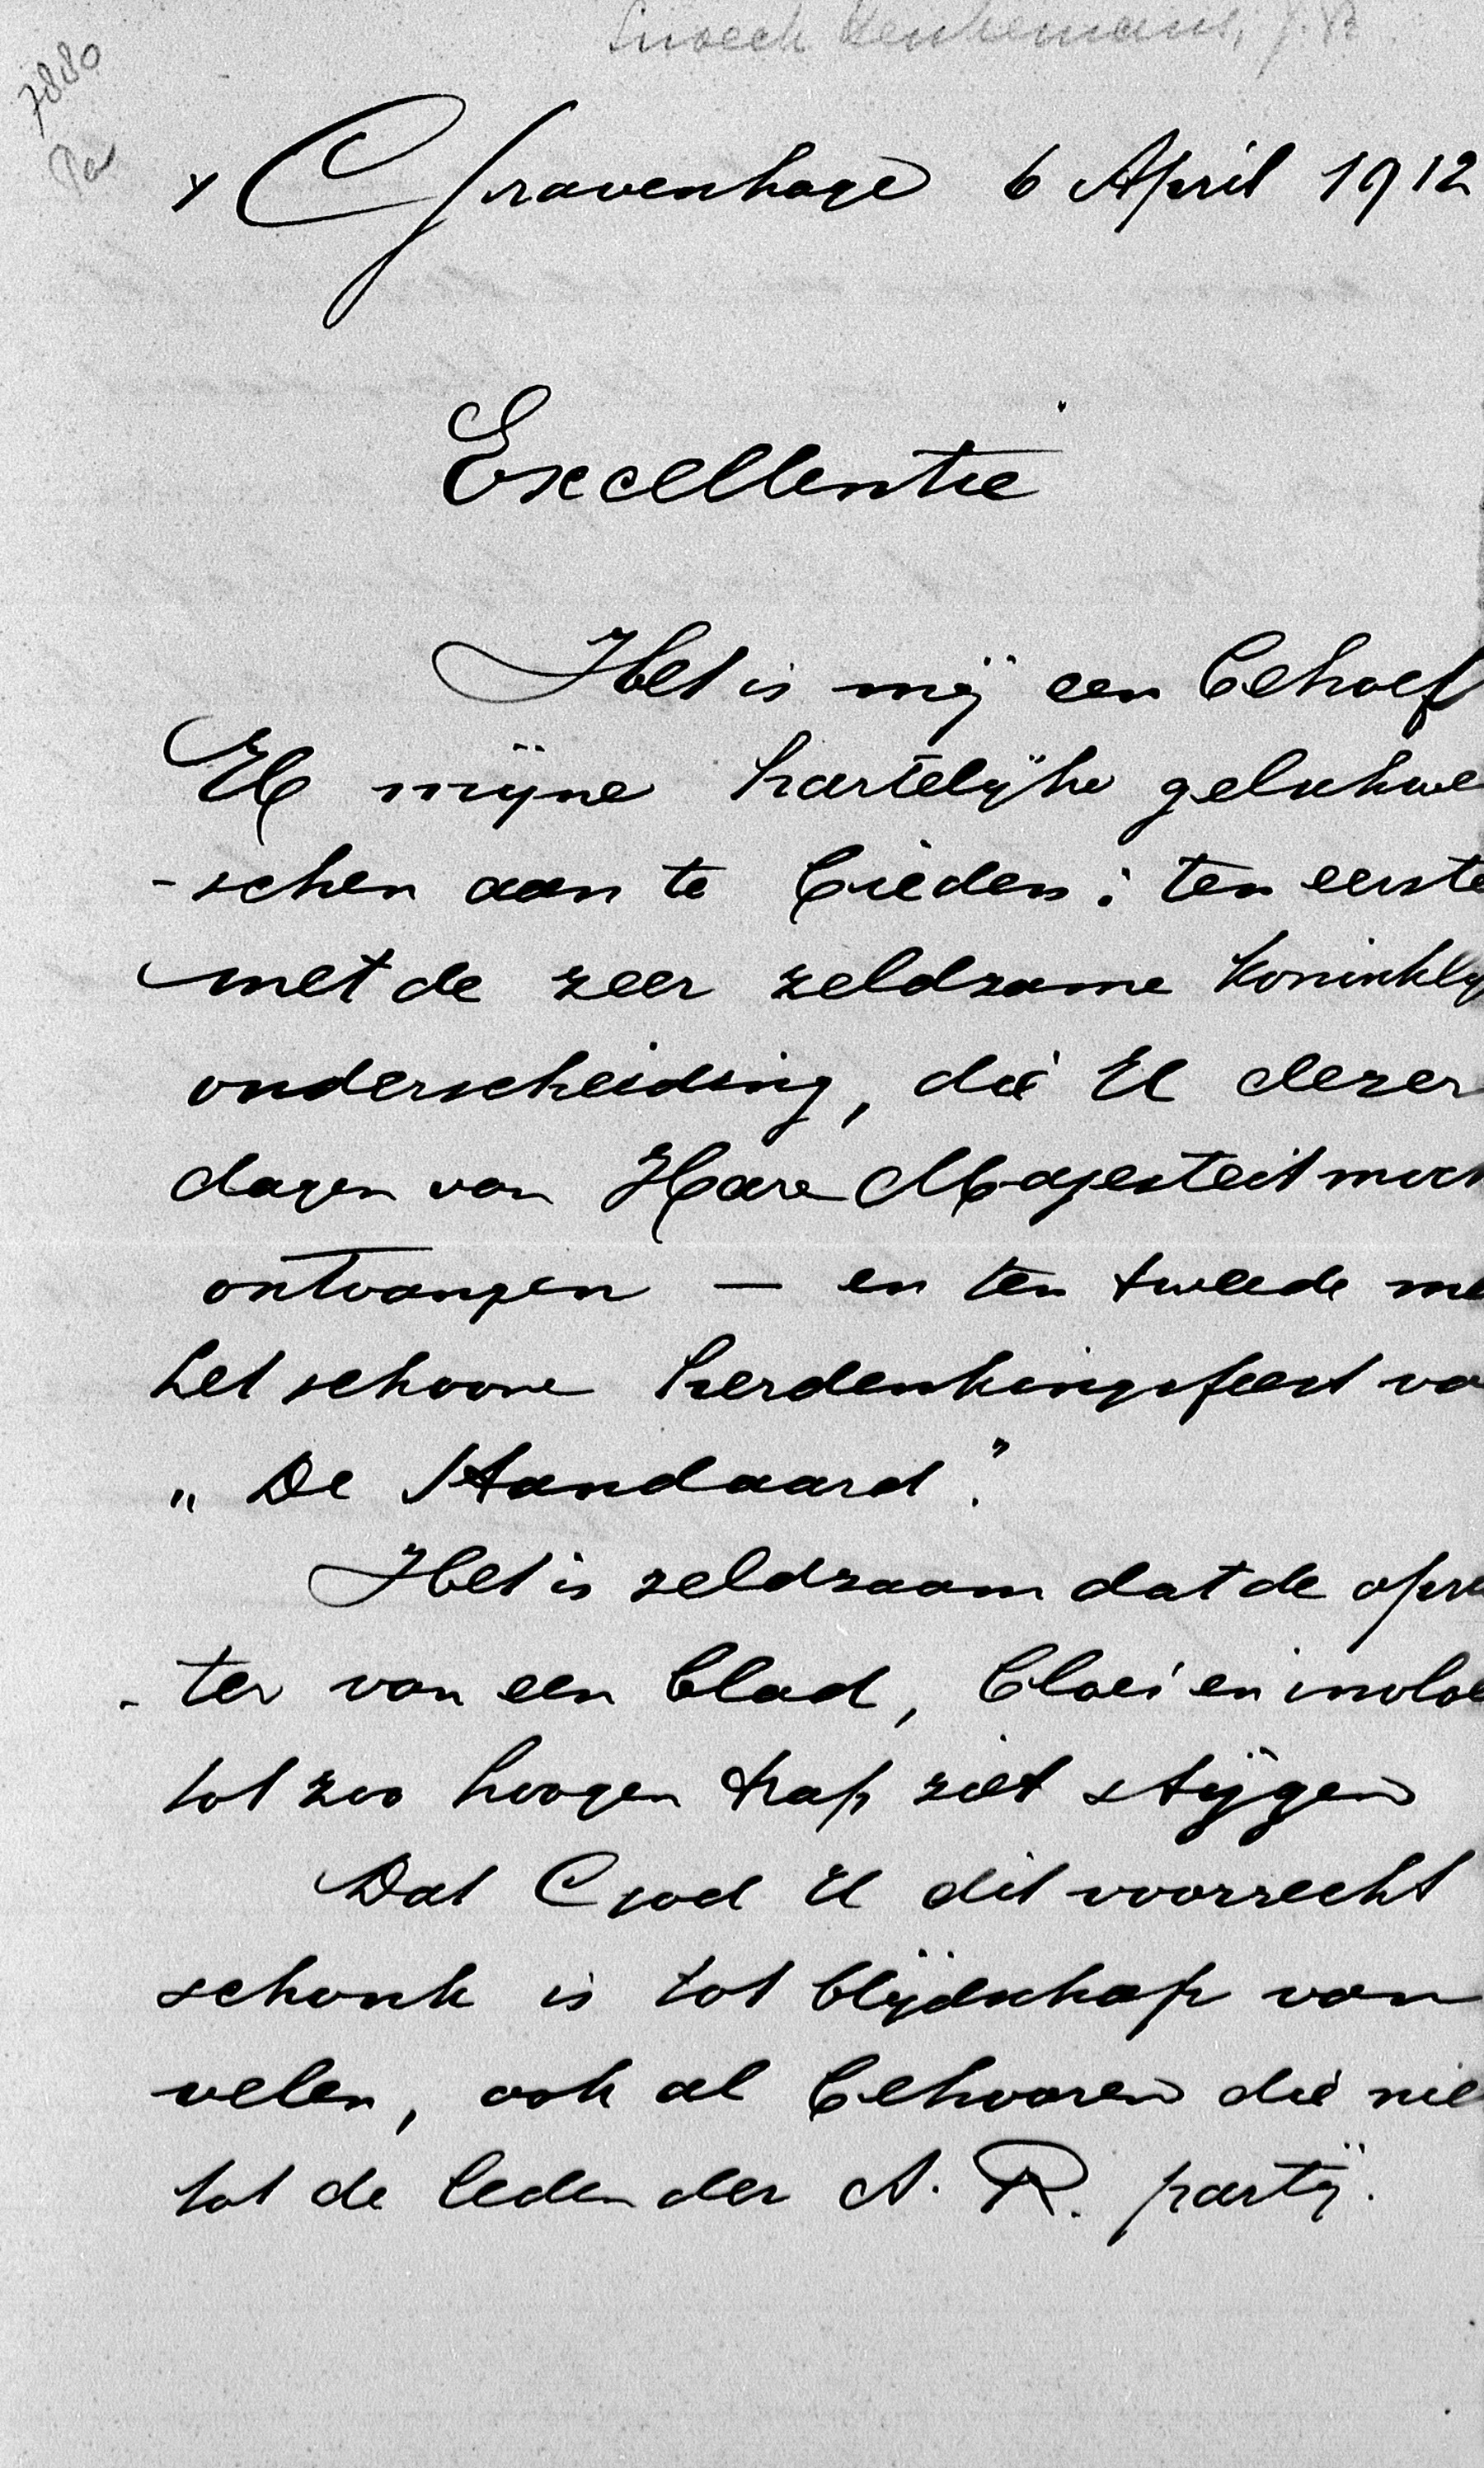 Snoeck Henkemans, J. R.
7880
's Gravenhage 6 April 1912
Excellentie
Het is mij een behoef
U mijne hartelijke gelukwe
-schen aan te bieden: ten eerste
met de zeer zeldzame koninklij
onderscheiding, die U dezer
dagen van Hare Majesteit moch
ontvangen — en ten tweede me
het schoone herdenkingsfeest va
„De Standaard".
Het is zeldzaam dat de opri
-ter van een blad, bloei en invloe
tot zoo hoogen trap ziet stijgen
Dat God U dit voorrecht
schonk is tot blijdschap van
velen, ook al behooren die nie
tot de leden der A. R. partij.